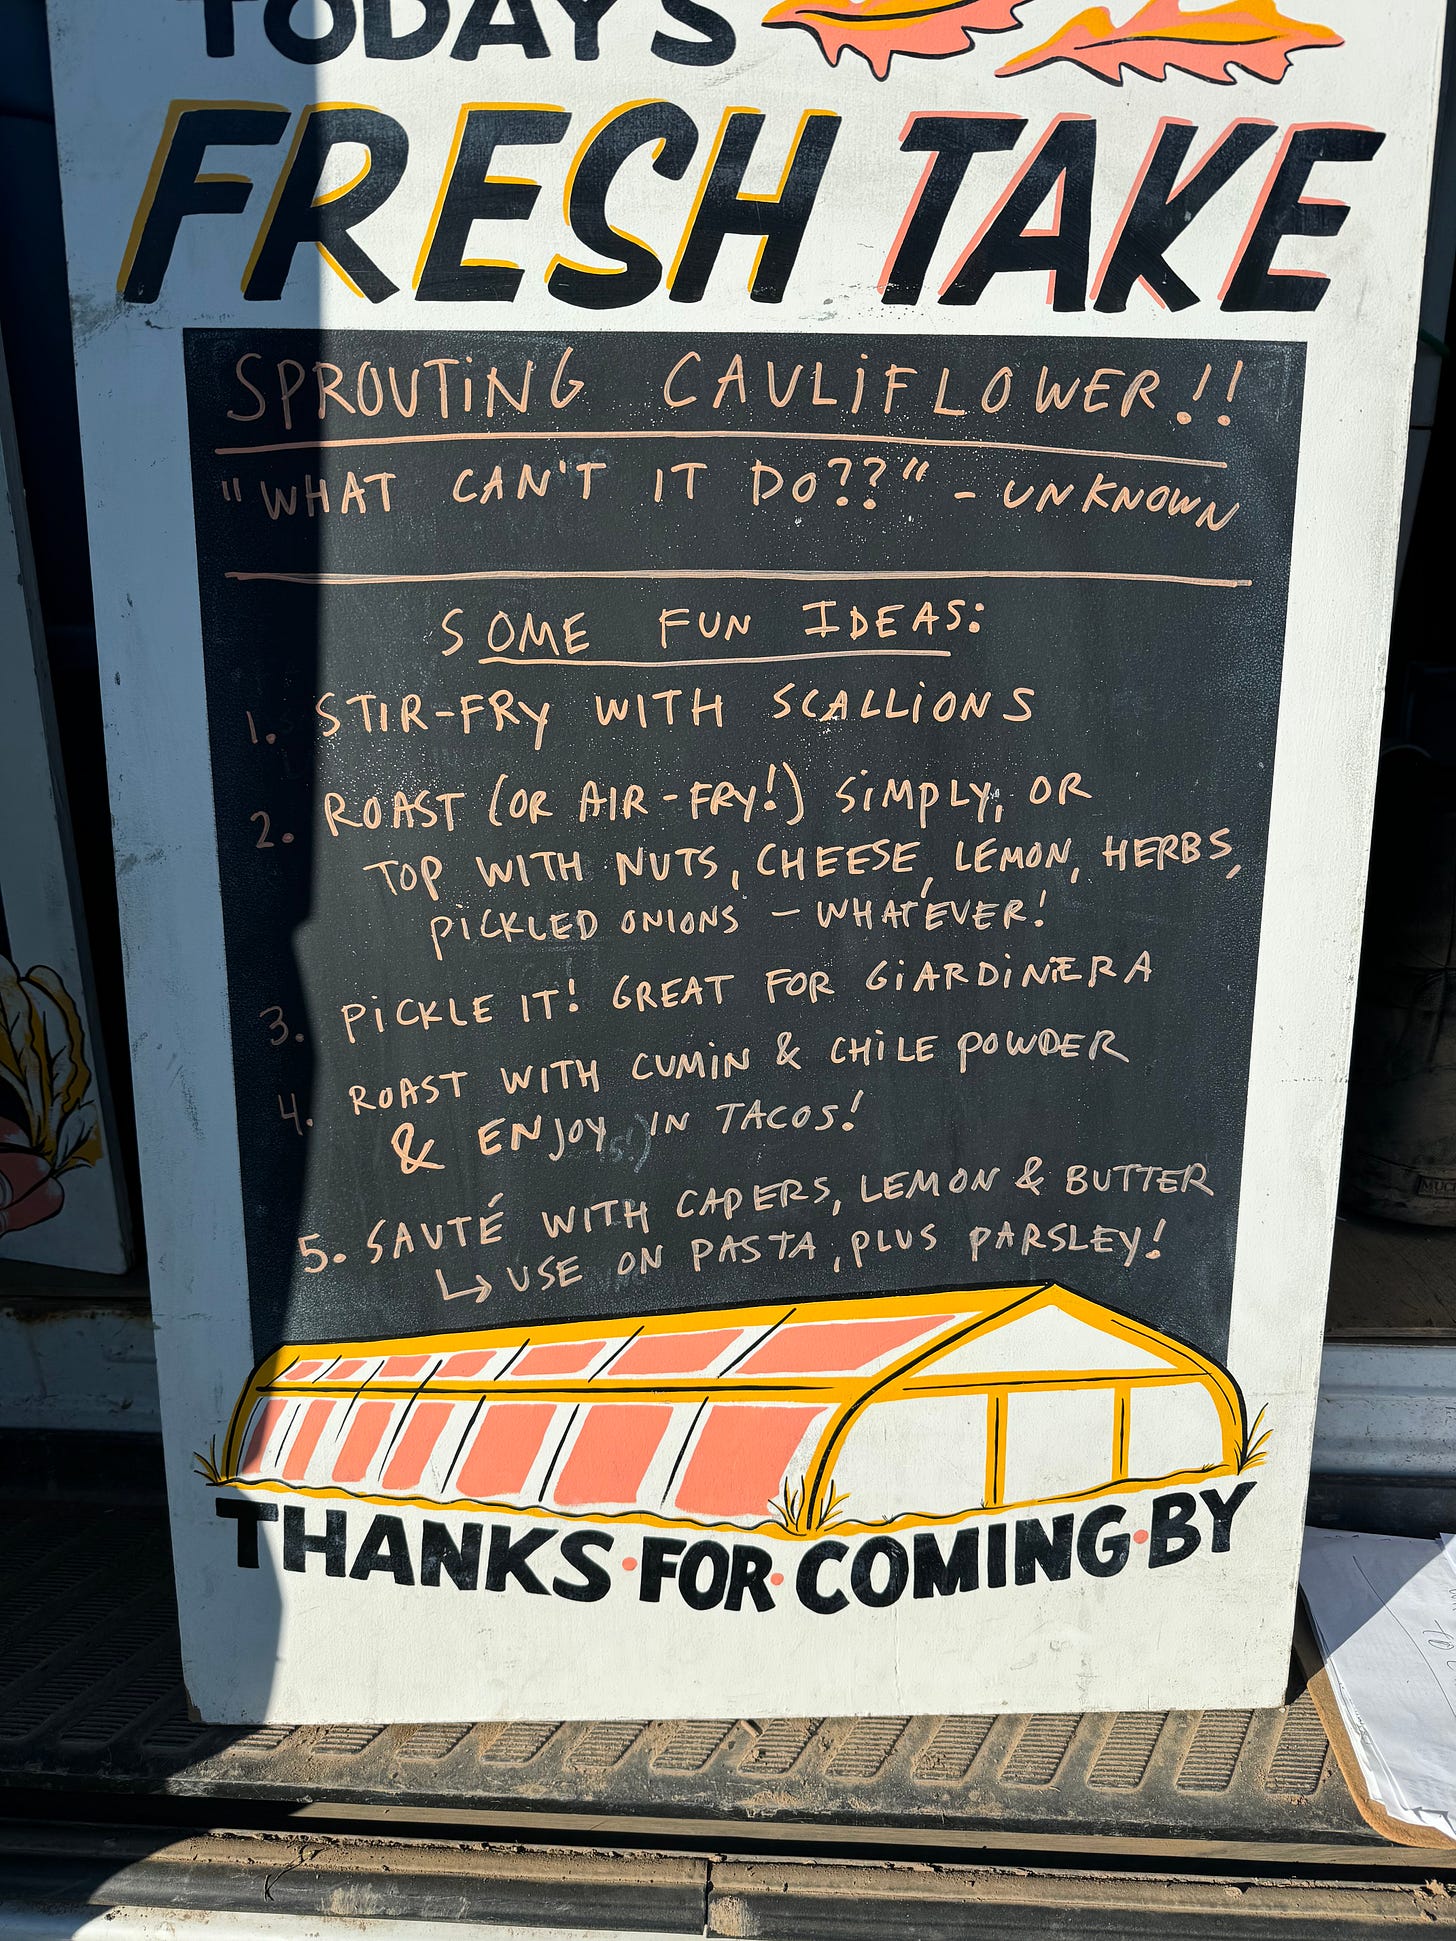 TODAY'S
FRESH TAKE
SPROUTING CAULIFLOWER!!
"WHAT CAN'T IT DO??" - UNKNOWN
SOME FUN IDEAS:
1. STIR-FRY WITH SCALLIONS
2. ROAST (OR AIR-FRY!) SIMPLY, OR
TOP WITH NUTS, CHEESE, LEMON, HERBS,
PICKLED ONIONS - WHATEVER!
3. PICKLE IT! GREAT FOR GIARDINERA
4. ROAST WITH CUMIN & CHILE POWDER
& ENJOY IN TACOS!
5. SAUTÉ WITH CAPERS, LEMON & BUTTER
↳ USE ON PASTA, PLUS PARSLEY!
THANKS·FOR·COMING·BY